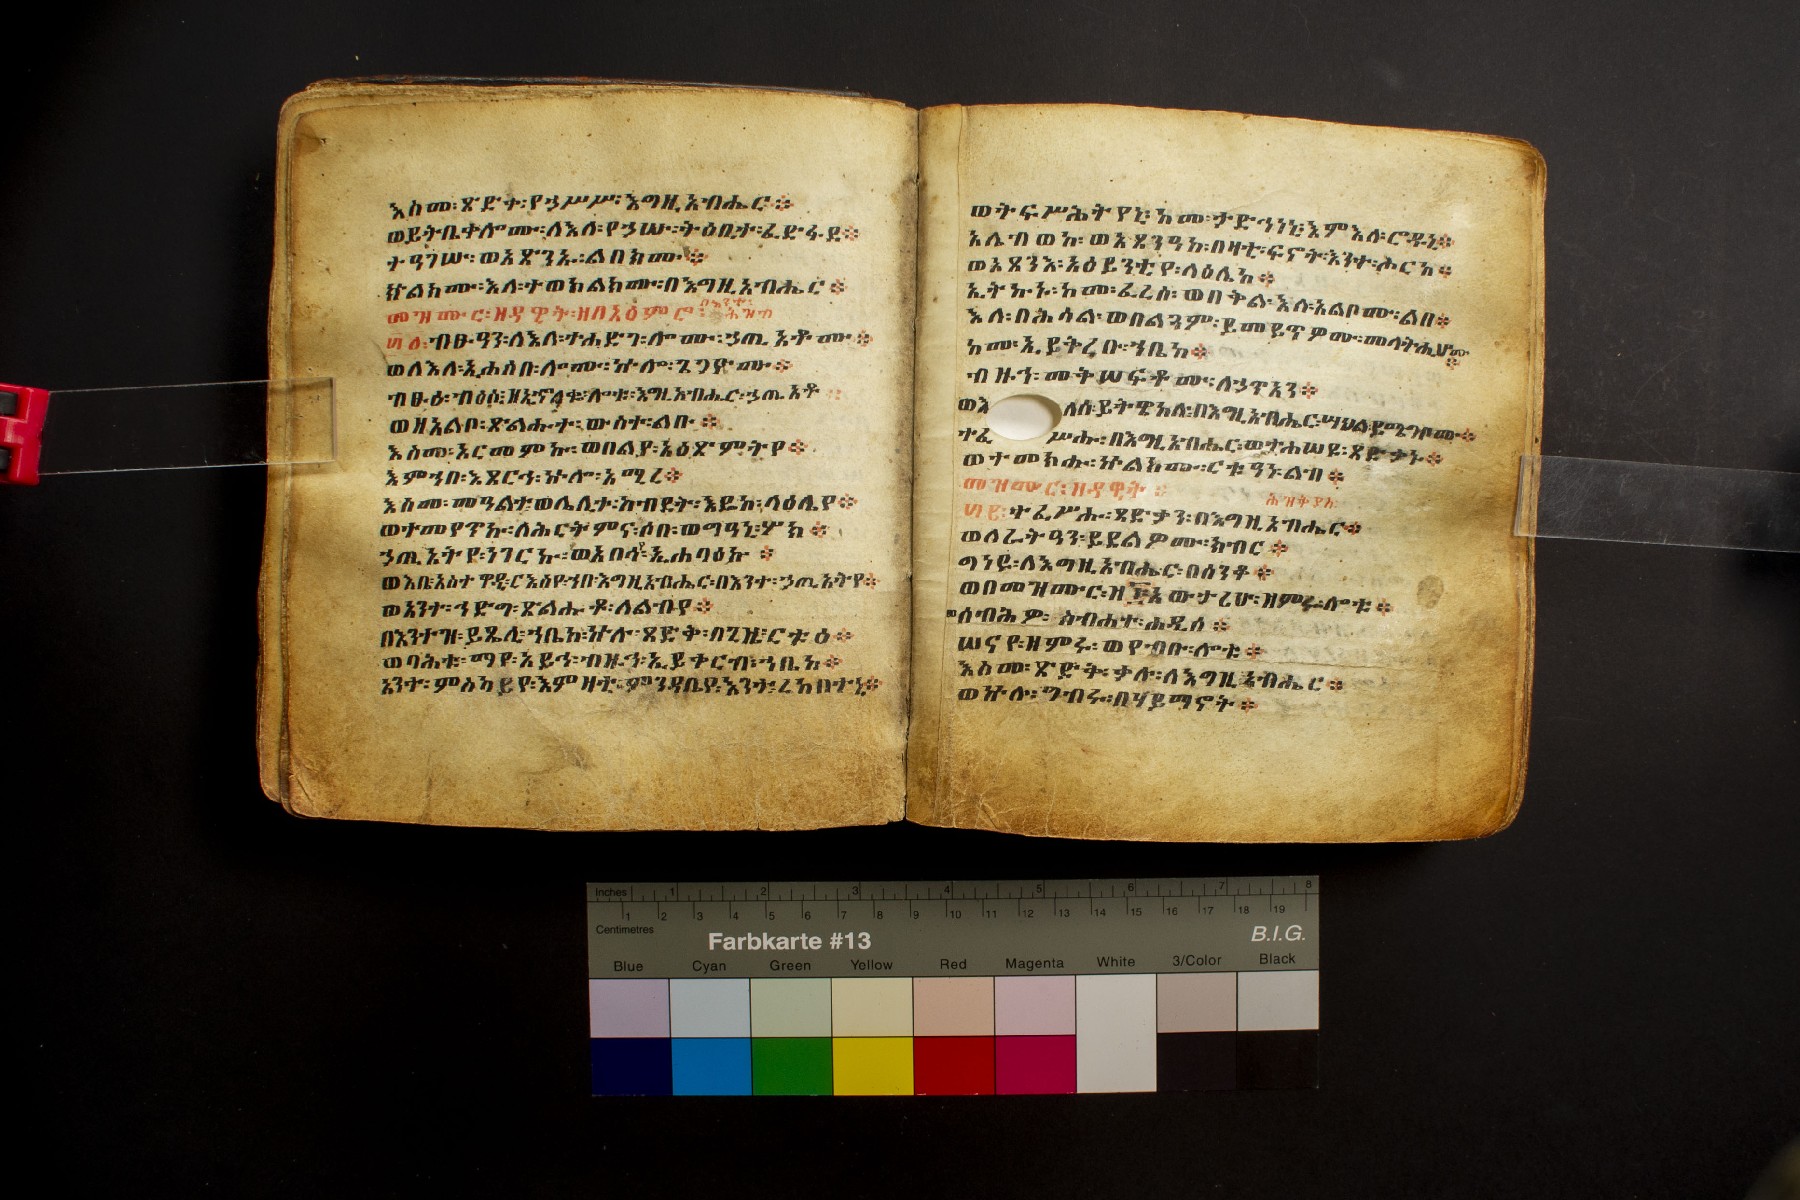 እስመ፡ጽድቀ፡የኃሥሥ፡እግዚአብሔር፨
ወይትቤቀሎሙ፡ለእለ፡የኃሡ፡ትዕቢተ፡ፈድፋደ፨
ተዓገሡ፡ወአጽንኡ፡ልበክሙ፨
ኵልክሙ፡እለ፡ተወከልክሙ፡በእግዚአብሔር፨
በእንተ፡
መዝሙር፡ዘዳዊት፡ዘበአዕምሮ፡ ሕዝብ
፴፩፡ብፁዓን፡ለእለ፡ተኀድገ፡ሎሙ፡ኃጢአቶሙ፨
ወለእለ፡ኢሐሰበ፡ሎሙ፡ኵሎ፡ጌጋዮሙ፨
ብፁዕ፡ብዕሲ፡ዘኢኖለቈ፡ሎቱ፡እግዚአብሔር፡ኃጢአቶ
ወዘአልቦ፡ጽልሑተ፡ውስተ፡ልቡ፨
እስመ፡አርመምኩ፡ወበልየ፡አዕጽምትየ፨
እምኀበ፡እጸርኅ፡ኵሎ፡አሚረ፨
እስመ፡መዓልተ፡ወሌሊተ፡ከብደት፡እዴከ፡ላዕሌየ፨
ወተመየጥኩ፡ለሕርትምና፡ሶበ፡ወግዓኒ፡ሦክ፨
ኃጢአትየ፡ነገርኩ፡ወአበሳየ፡ኢሐባዕኩ፨
ወእቤ፡አስተዋዲ፡ርእስየ፡ኀበ፡እግዚአብሔር፡በእንተ፡ኃጢአትየ፨
ወአንተ፡ኅድግ፡ጽልሑቶ፡ለልብየ፨
በእንተዝ፡ይጼሊ፡ኀቤከ፡ኵሉ፡ጻድቅ፡በጊዜ፡ርቱዕ፨
ወባሕቱ፡ማየ፡አይኅ፡ብዙኅ፡ኢይቀርብ፡ኀቤከ፨
አንተ፡ምስካይየ፡እምዛቲ፡ምንዳቤየ፡እንተ፡ረከበተኒ፨
ወትፍሥሕትየኒ፡ከመ፡ታድኅነኒ፡እምእለ፡ሮዱኒ፨
አሌብወከ፡ወአጸንዓከ፡በዛቲ፡ፍኖት፡እንተ፡ሖርከ፨
ወአጸንእ፡አዕይንቲየ፡ላዕሌከ፨
ኢትኩኑ፡ከመ፡ፈረስ፡ወበቅል፡እለ፡አልቦሙ፡ልበ፨
እለ፡በሕሳል፡ወበልጓም፡ይመይጥዎሙ፡መላትሒሆሙ፨
ከመ፡ኢይቅረቡ፡ኀቤከ፨
ብዙኅ፡መቅሠፍቶሙ፡ለኃጥአን፨
ወእ ለሰ፡ይትዌከሉ፡በእግዚአብሔር፡ሣህል፡ይሜግቦሙ፨
ተፈ ሥሑ፡በእግዚአብሔር፡ወተሐሠዩ፡ጻድቃኑ፨
ወተመክሑ፡ኵልክሙ፡ርቱዓነ፡ልብ፨
መዝሙር፡ዘዳዊት፨
፴፪፡ተፈሥሑ፡ጻድቃን፡በእግዚአብሔር፨
ወለራትዓን፡ይደልዎሙ፡ክብር፨
ግነዩ፡ለእግዚአብሔር፡በሰንቆ፨
ወበመዝሙር፡ዘ፲አውታሪሁ፡ዘምሩ፡ሎቱ፨
ሰብሕዎ፡ስብሐተ፡ሐዲሰ፨
ሠናየ፡ዘምሩ፡ወየብቡ፡ሎቱ፨
እስመ፡ጽድቅ፡ቃሉ፡ለእግዚአብሔር፨
ወኵሉ፡ግብሩ፡በሃይማኖት፨
Inches 1 2 3 4 5 6 7 8
1 2 3 4 5 6 7 8 9 10 11 12 13 14 15 16 17 18 19
Centimetres
Farbkarte #13
B.I.G.
Blue Cyan Green Yellow Red Magenta White 3/Color Black